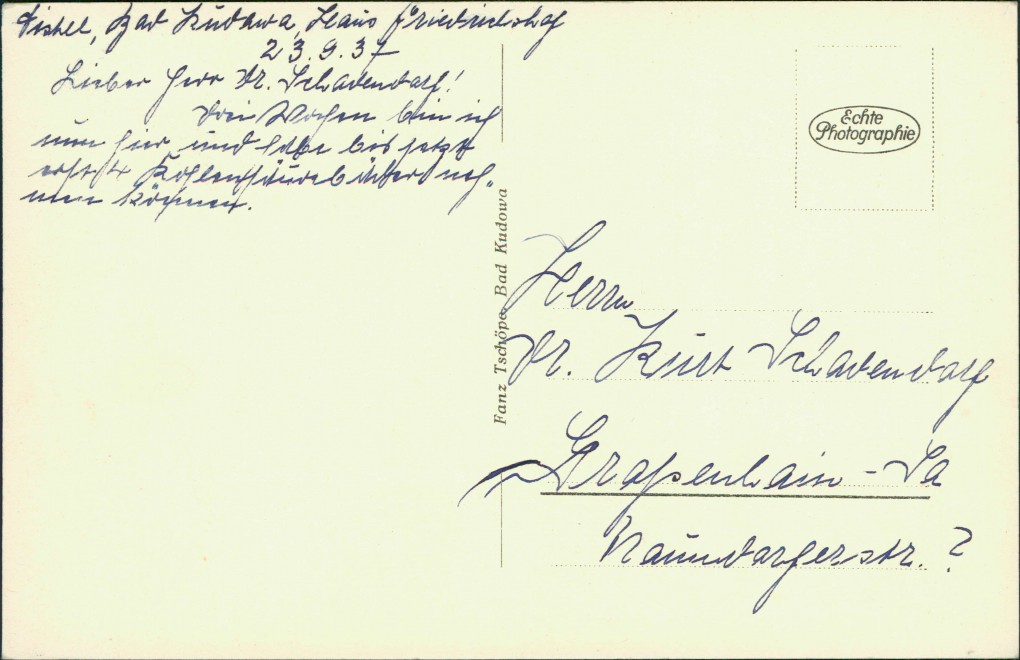 Bad Kudowa, Haus Friedrichshof
23.9.37
Lieber Herr Dr. Schadendorf!
Drei Wochen bin ich
nun hier und habe bis jetzt
erst 4 Kohlensäurebäder neh-
men können.
Echte
Photographie
Fanz Tschöpe, Bad Kudowa
Herrn
Dr. Kurt Schadendorf
Großenhain-Sa
Naundorferstr. ?